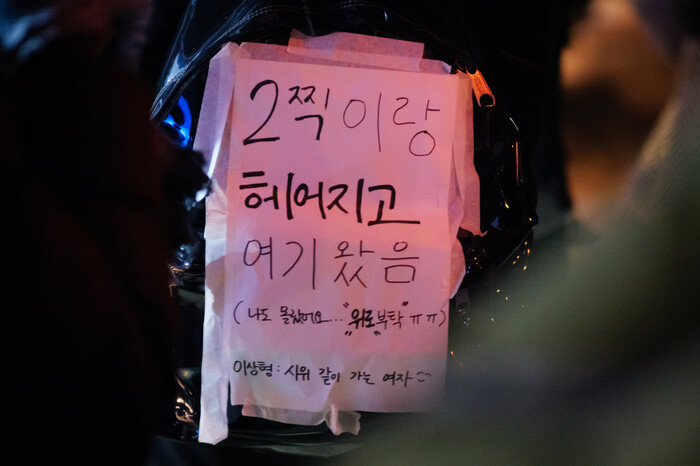 2찍이랑
헤어지고
여기왔음
(나도 몰랐어요... "위로"부탁 ㅠㅠ)
이상형: 시위 같이 가는 여자